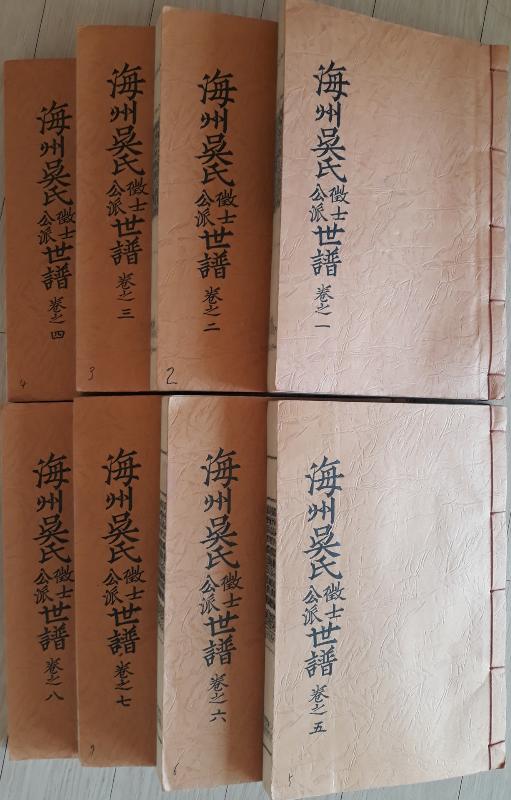 海州吳氏徵士公派世譜 卷之一
海州吳氏徵士公派世譜 卷之二
2
海州吳氏徵士公派世譜 卷之三
3
海州吳氏徵士公派世譜 卷之四
4
海州吳氏徵士公派世譜 卷之五
5
海州吳氏徵士公派世譜 卷之六
6
海州吳氏徵士公派世譜 卷之七
海州吳氏徵士公派世譜 卷之八